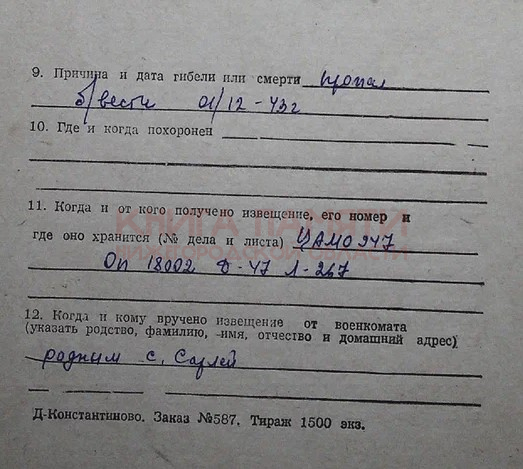 9. Причина и дата гибели или смерти пропал
б/вести 01/12-43г
10. Где и когда похоронен
КНИГА ПАМЯТИ
11. Когда и от кого получено извещение, его номер и
где оно хранится (№ дела и листа) ЦАМО 947
Оп 18002 Д-47 Л-267
12. Когда и кому вручено извещение от военкомата
(указать родство, фамилию, -имя, отчество и домашний адрес)
родным с. Сарлей
Д-Константиново. Заказ №587. Тираж 1500 экз.